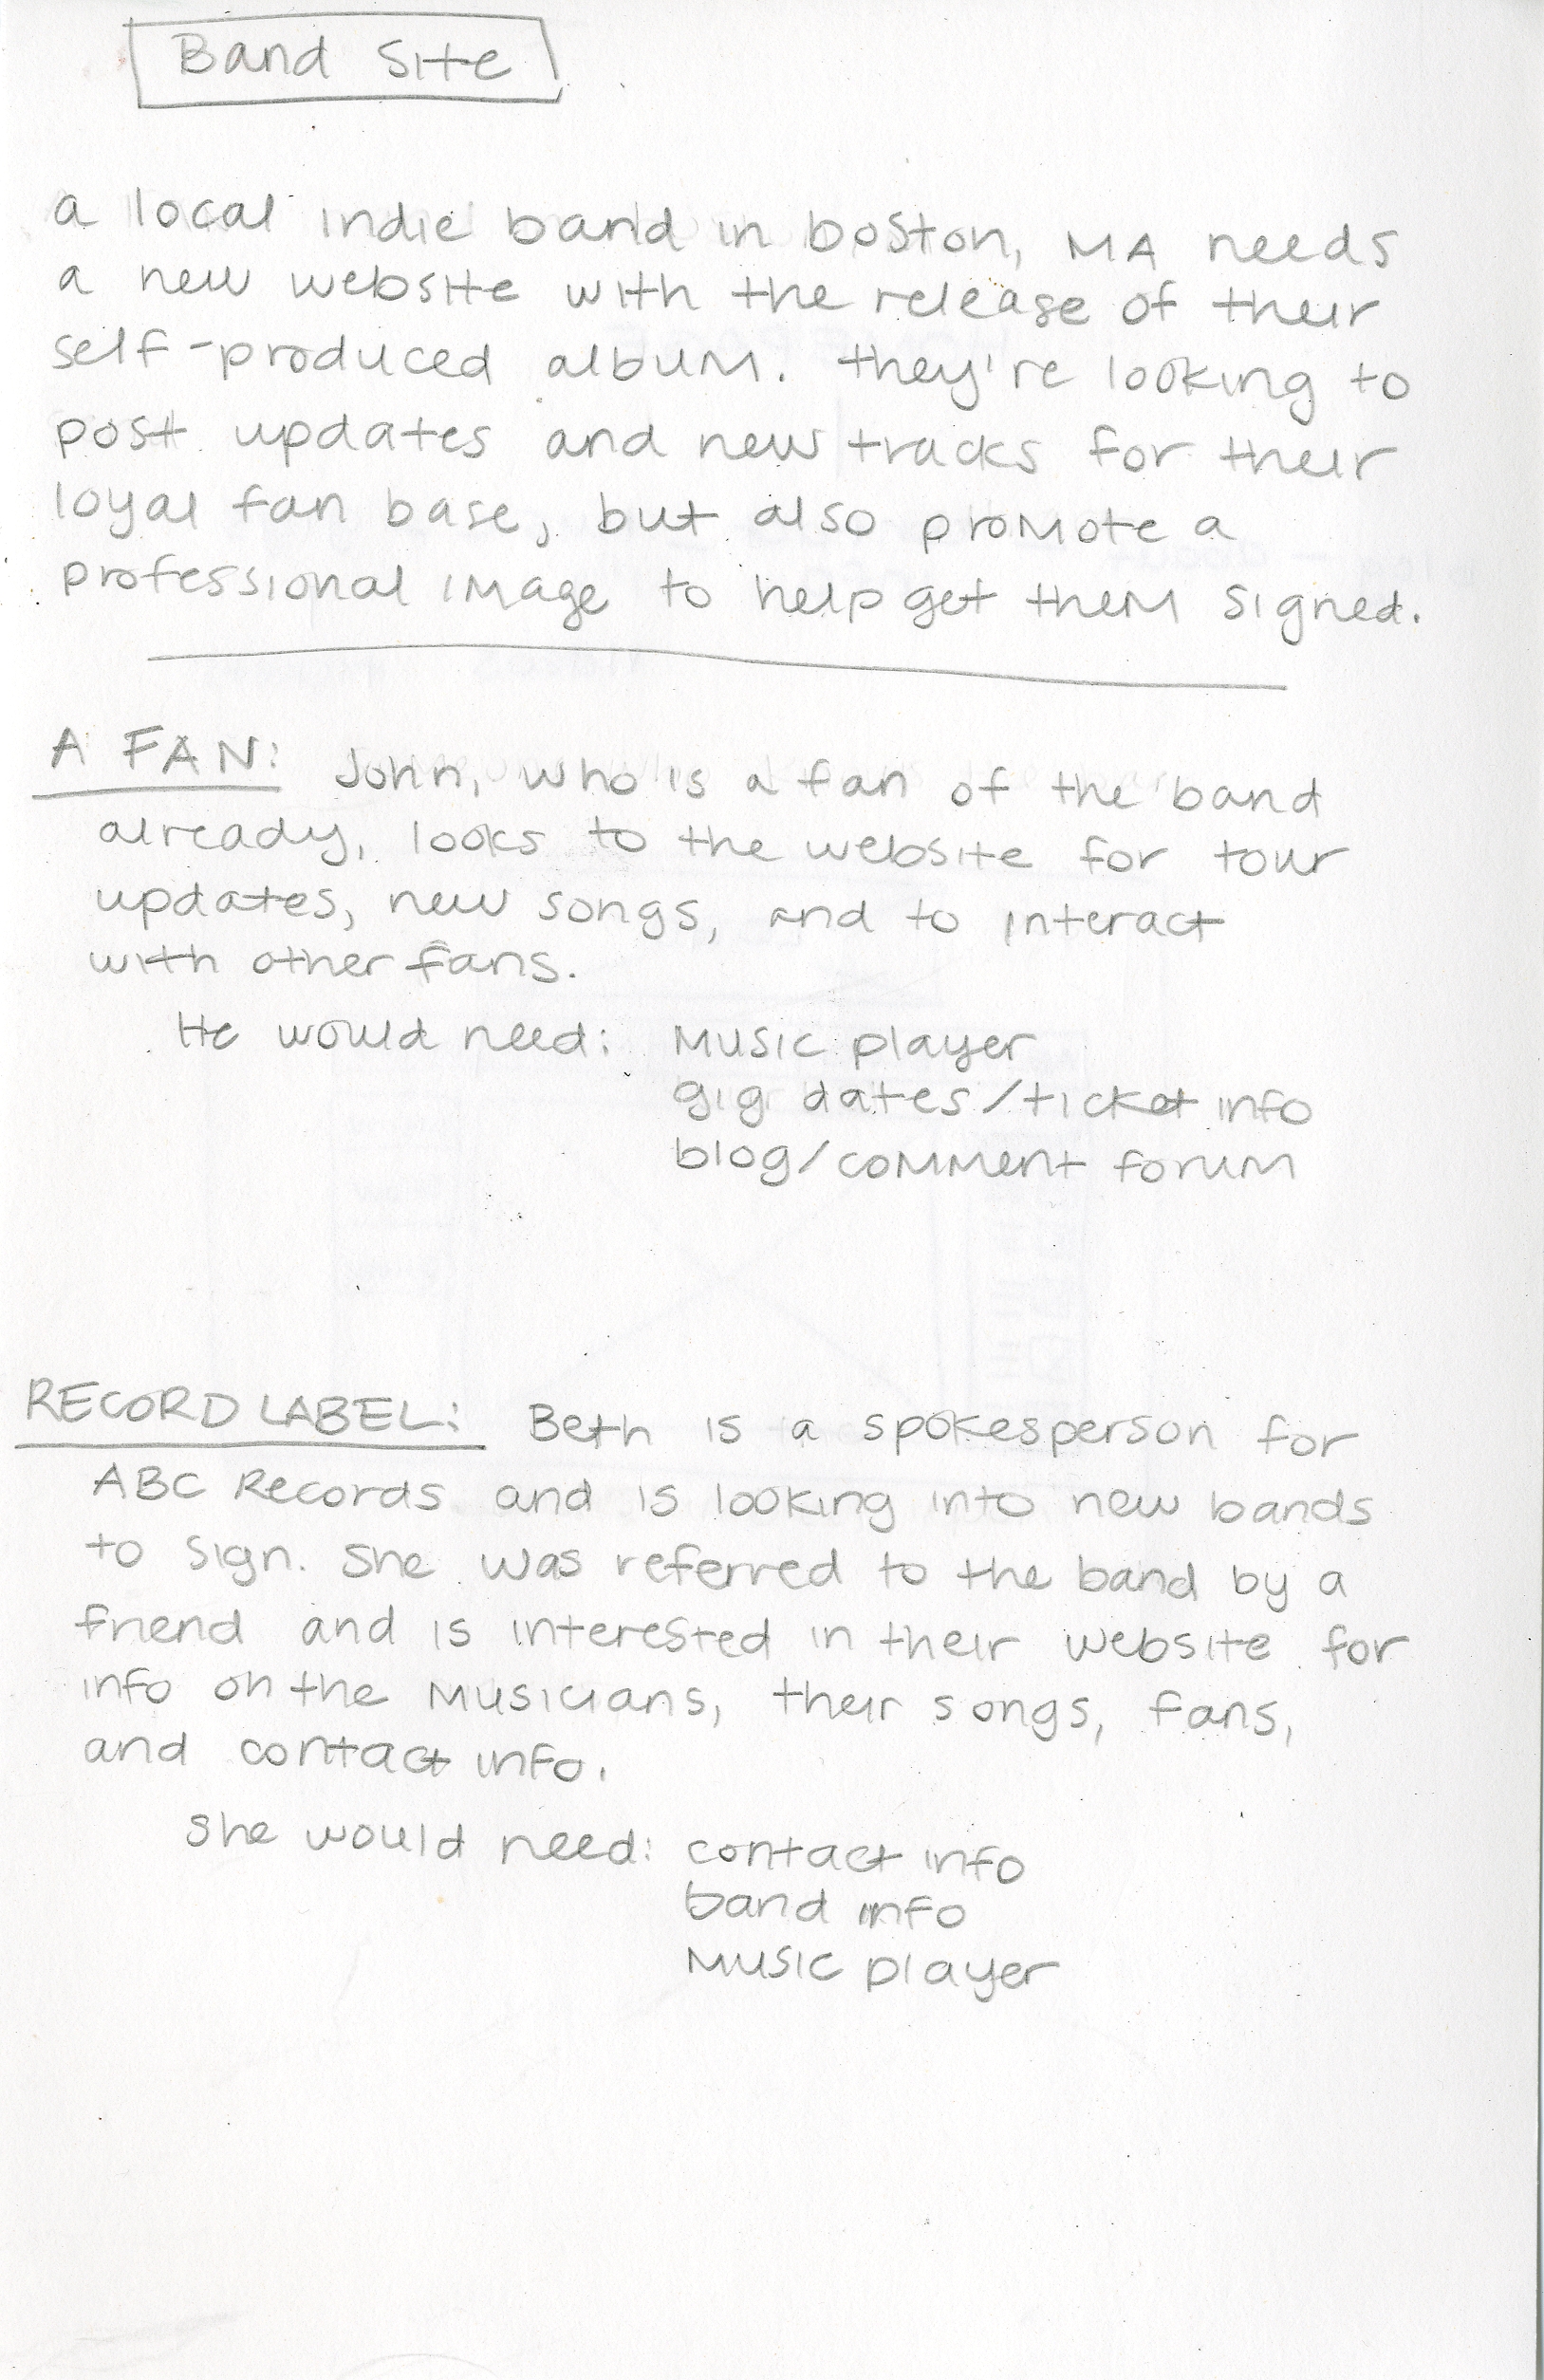 Band Site
a local indie band in boston, MA needs
a new website with the release of their
self-produced album. they're looking to
post updates and new tracks for their
loyal fan base, but also promote a
professional image to help get them signed.
A FAN: John, who is a fan of the band
already, looks to the website for tour
updates, new songs, and to interact
with other fans.
He would need: Music player
gig dates/ticket info
blog/comment forum
RECORD LABEL: Beth is a spokesperson for
ABC Records and is looking into new bands
to sign. She was referred to the band by a
friend and is interested in their website for
info on the musicians, their songs, fans,
and contact info.
She would need: contact info
band info
Music player